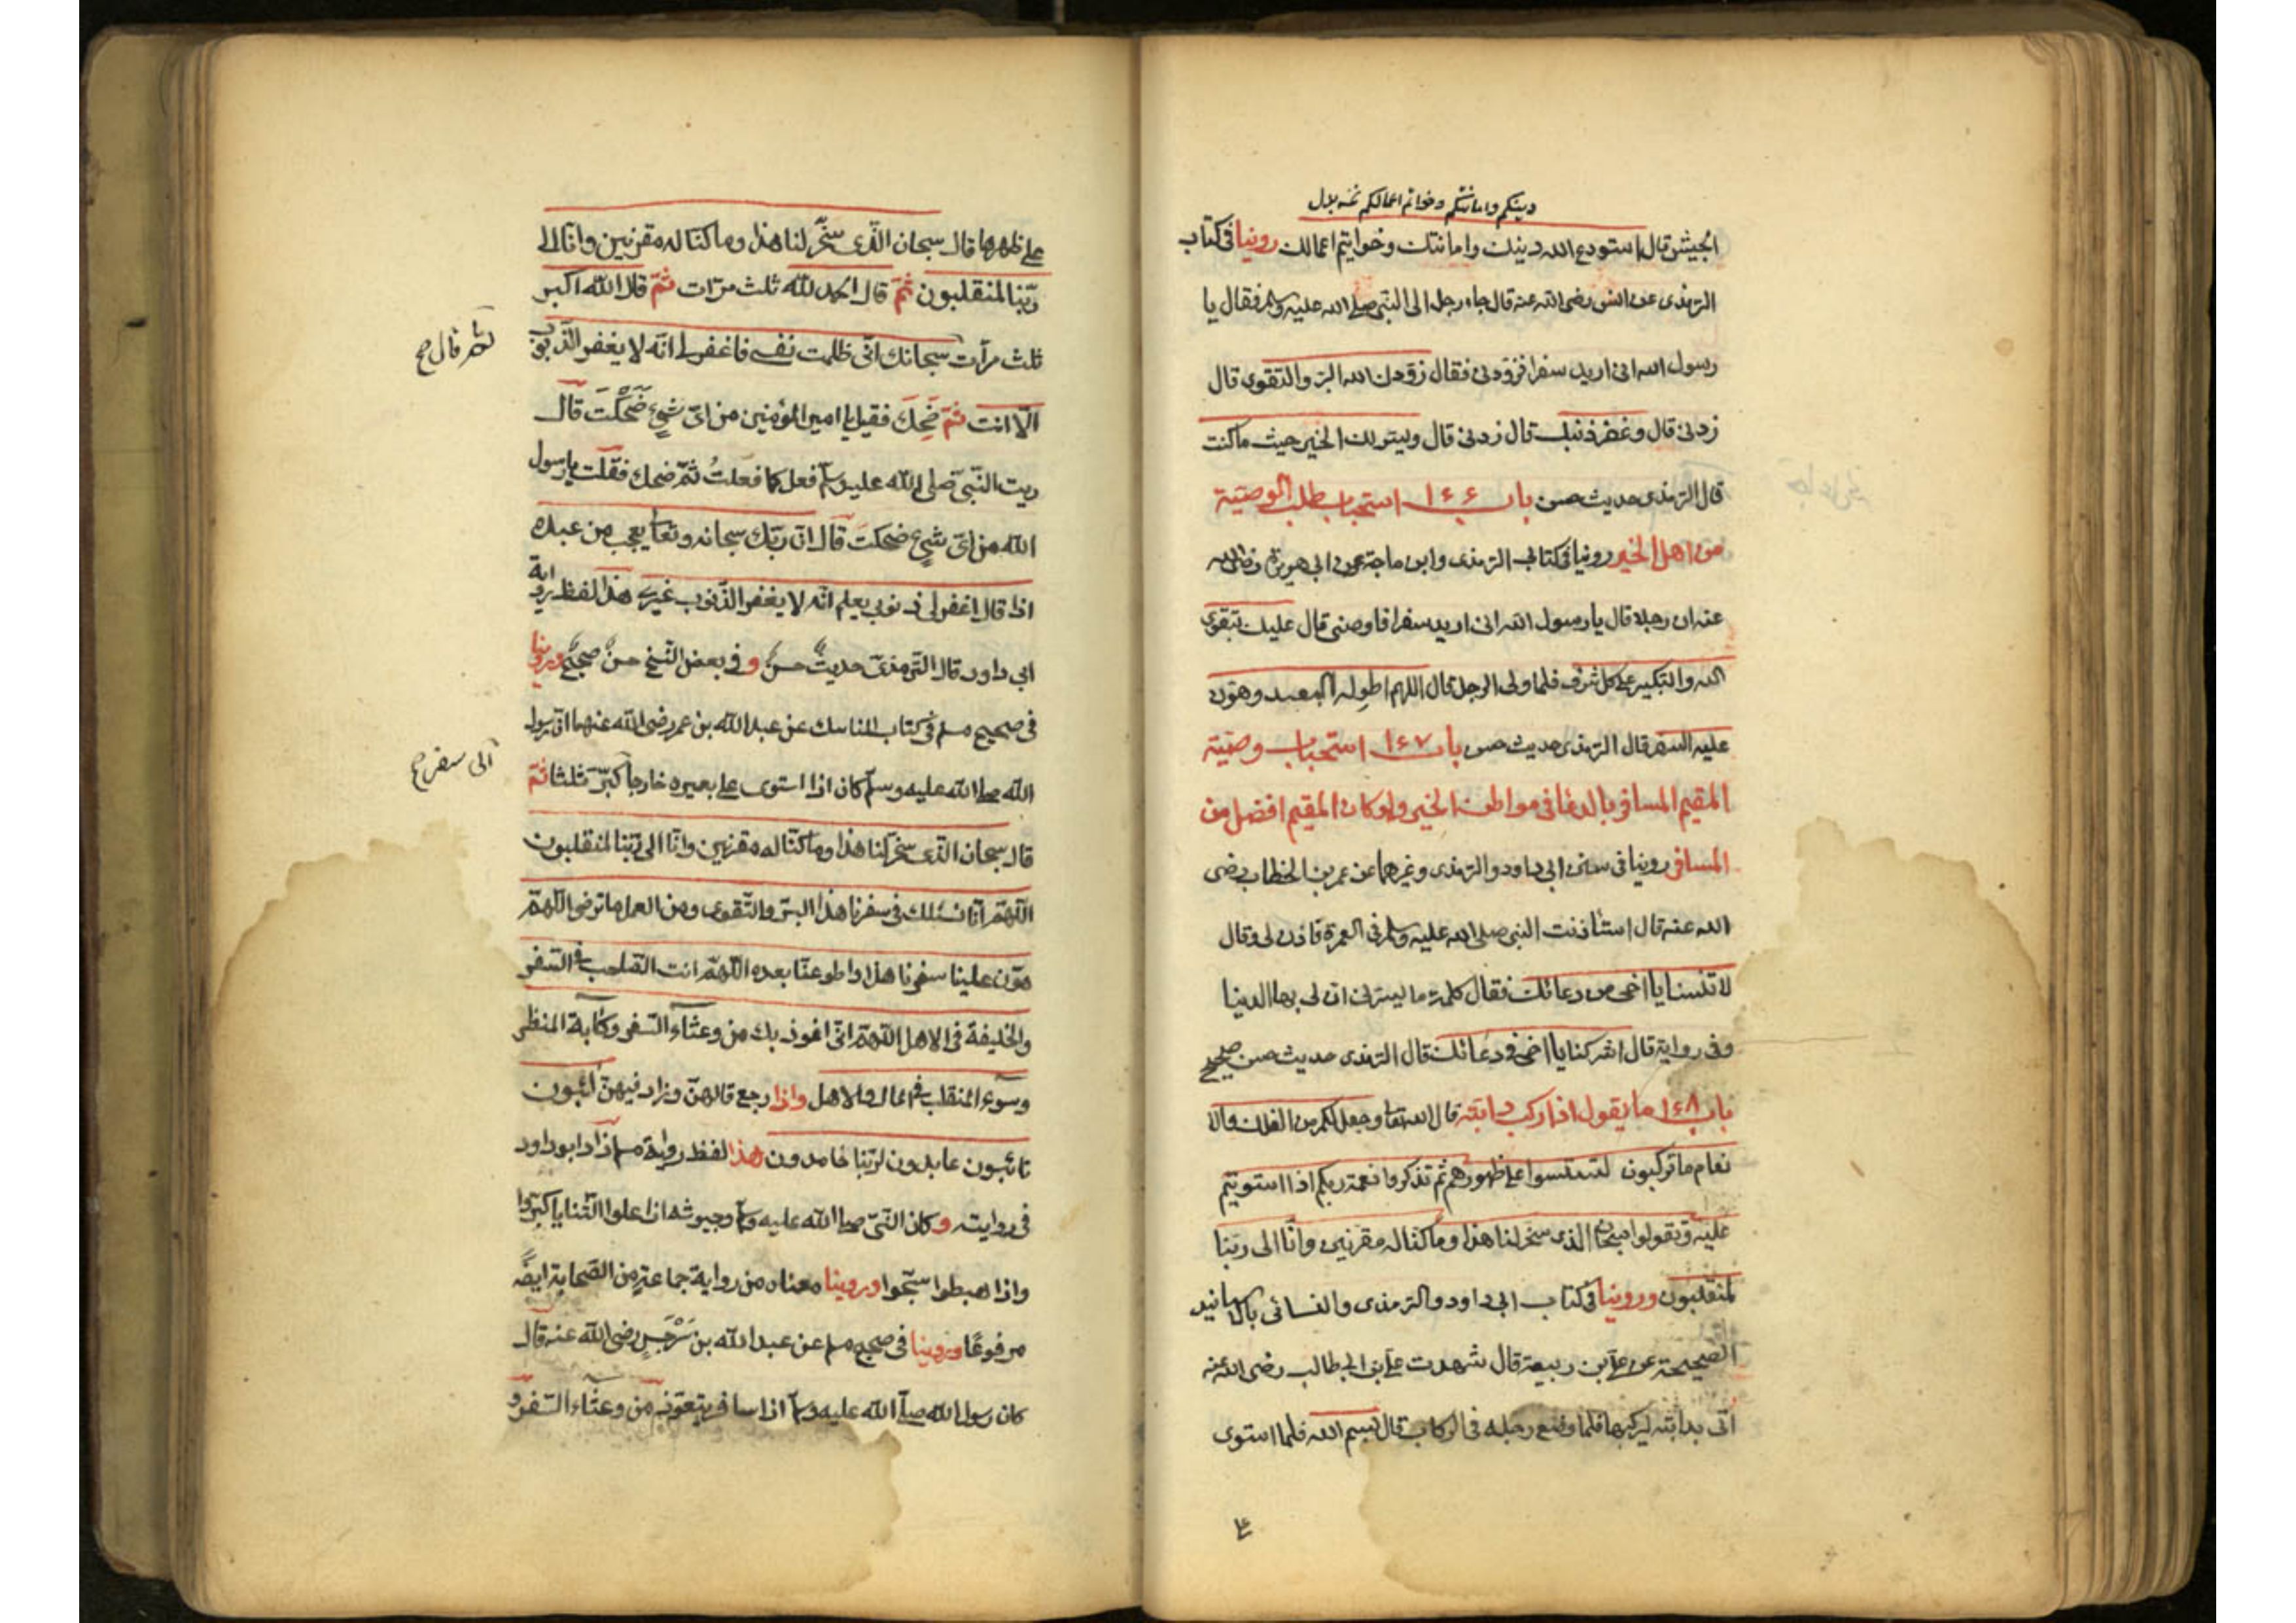 دينكم وامانتكم وخواتم اعمالكم نسخه بدل
الجيش قال استودع الله دينك وامانتك وخواتيم اعمالك روينا في كتاب
الترمذى عن انس رضى الله عنه قال جاء رجل الى النبى صلى الله عليه وسلم فقال يا
رسول الله انى اريد سفرا فزودنى فقال زودك الله البر والتقوى قال
زدنى قال وغفر ذنبك قال زدنى قال ويسر لك الخير حيث ما كنت
قال الترمذى حديث حسن باب ١٤٦ استحباب طلب الوصية
من اهل الخير روينا فى كتاب الترمذى وابن ماجة عن ابى هريرة رضى الله
عنه ان رجلا قال يا رسول الله انى اريد سفرا فاوصنى قال عليك بتقوى
الله والتكبير على كل شرف فلما ولى الرجل قال اللهم اطو له البعيد وهون
عليه السفر قال الترمذى حديث حسن باب ١٤٧ استحباب وصية
المقيم المسافر بالدعا فى مواطن الخير ولو كان المقيم افضل من
المسافر روينا فى سنن ابى داود والترمذى وغيرهما عن عمر بن الخطاب رضى
الله عنه قال استأذنت النبى صلى الله عليه وسلم فى العمرة فاذن لى وقال
لا تنسنا يا اخى من دعائك فقال كلمة ما يسرنى ان لى بها الدنيا
وفى رواية قال اشركنا يا اخى فى دعائك قال الترمذى حديث حسن صحيح
باب ١٤٨ ما يقول اذا ركب دابته قال الله تعا وجعل لكم من الفلك والا
نعام ما تركبون لتستووا على ظهورهم ثم تذكروا نعمة ربكم اذا استويتم
عليه وتقولوا سبحان الذى سخر لنا هذا وما كنا له مقرنين وانا الى ربنا
لمنقلبون وروينا فى كتاب ابى داود والترمذى والنسائى بالاسانيد
الصحيحة عن على بن ربيعة قال شهدت على بن ابى طالب رضى الله عنه
اتى بدابته ليركبها فلما وضع رجله فى الركاب قال بسم الله فلما استوى
على ظهرها قال سبحان الّذى سخّر لنا هذا وما كنا له مقرنين وانا الى
ربّنا لمنقلبون ثمّ قال الحمد للّه ثلث مرّات ثمّ قال الله اكبر
ثلث مرّات سبحانك انّى ظلمت نفسى فاغفر لى انّه لا يغفر الذّنوب
ثم قال صح
الّا انت ثمّ ضَحِكَ فقيل يا امير المؤمنين من اىّ شىءٍ ضَحِكْتَ قال
ريت النّبىّ صلى الله عليه وسلّم فعل كما فعلتُ ثمّ ضحك فقلت يا رسول
الله من اىّ شىءٍ ضحكتَ قال انّ ربّك سبحانه وتعا يعجب من عبده
اذا قال اغفر لى ذنوبى يعلم انّه لا يغفر الذّنوب غيرى هذا لفظ رواية
ابى داود قال التّرمذىّ حديثٌ حسنٌ و فى بعض النّسخ حسنٌ صحيحٌ وروينا
فى صحيح مسلم فى كتاب المناسك عن عبد الله بن عمر رضى الله عنهما انّ رسول
الله صلى الله عليه وسلّم كان اذا استوى على بعيره خارجا كبّر ثلثا ثمّ
الى سفر صح
قال سبحان الّذى سخّر لنا هذا وما كنّا له مقرنين وانّا الى ربّنا لمنقلبون
اللّهمّ انّا نسئلك فى سفرنا هذا البرّ والتّقوى ومن العمل ما ترضى اللّهمّ
هوّن علينا سفرنا هذا واطو عنّا بعده اللّهمّ انت الصّاحب فى السّفر
والخليفة فى الاهل اللّهمّ انّى اعوذ بك من وعثاء السّفر وكآبة المنظر
وسوء المنقلب فى المال والاهل واذا رجع قالهنّ وزاد فيهنّ آئبون
تائبون عابدون لربّنا حامدون هذا لفظ رواية مسلم زاد ابو داود
فى روايته وكان النّبىّ صلى الله عليه وسلم وجيوشه اذا علوا الثّنايا كبّروا
واذا هبطوا سبّحوا وروينا معناه من رواية جماعةٍ من الصّحابة ايضًا
مرفوعًا وروينا فى صحيح مسلم عن عبد الله بن سَرْجِسٍ رضى الله عنه قال
كان رسول الله صلّى الله عليه وسلم اذا سافر يتعوّذ من وعثاء السّفر و